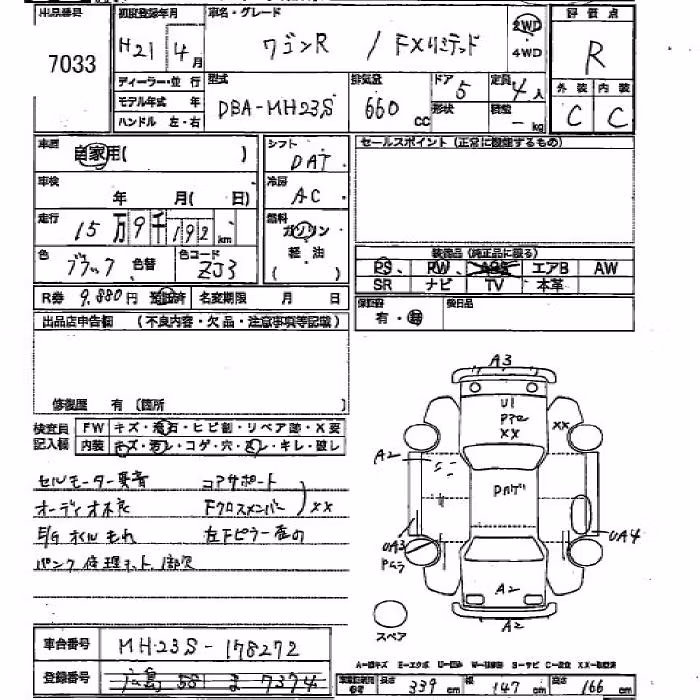 出品番号 初度登録年月 車名・グレード 評価点
7033 H21年4月 ワゴンR / FXリミテッド 2WD R
4WD
ディーラー・並行 型式 排気量 ドア 定員 外装 内装
モデル年式 年 DBA-MH23S 660cc 5 4人 C C
ハンドル 左・右 形状 積載 - kg
車歴 自家用( ) シフト DAT セールスポイント (正常に機能するもの)
車検 年 月( 日) 冷房 AC
走行 15万9千192km 燃料 ガソリン
軽油
( )
色 ブラック 色替 色コード ZJ3 装備品 (純正品に限る)
PS PW ABS エアB AW
SR ナビ TV 本革
R券 9,880円 預託済 名変期限 月 日 保証書 有・無 後日品
出品店申告欄 (不良内容・欠品・注意事項等記載)
修復歴 有 (箇所 )
検査員記入欄 FW キズ・飛石・ヒビ割・リペア跡・X要
内装 キズ・汚レ・コゲ・穴・スレ・キレ・破レ
セルモーター異音 コアサポート
オーディオ不良 Fクロスメンバー XX
E/G オイルもれ 左Fピラー
パンク修理キット 1部欠
A3
U1
XX
XX
A2
UA3
UA4
A2
A2
スペア
車台番号 MH23S-178272
登録番号 広島 581 ま 7374
長さ 339cm 幅 147cm 高さ 166cm